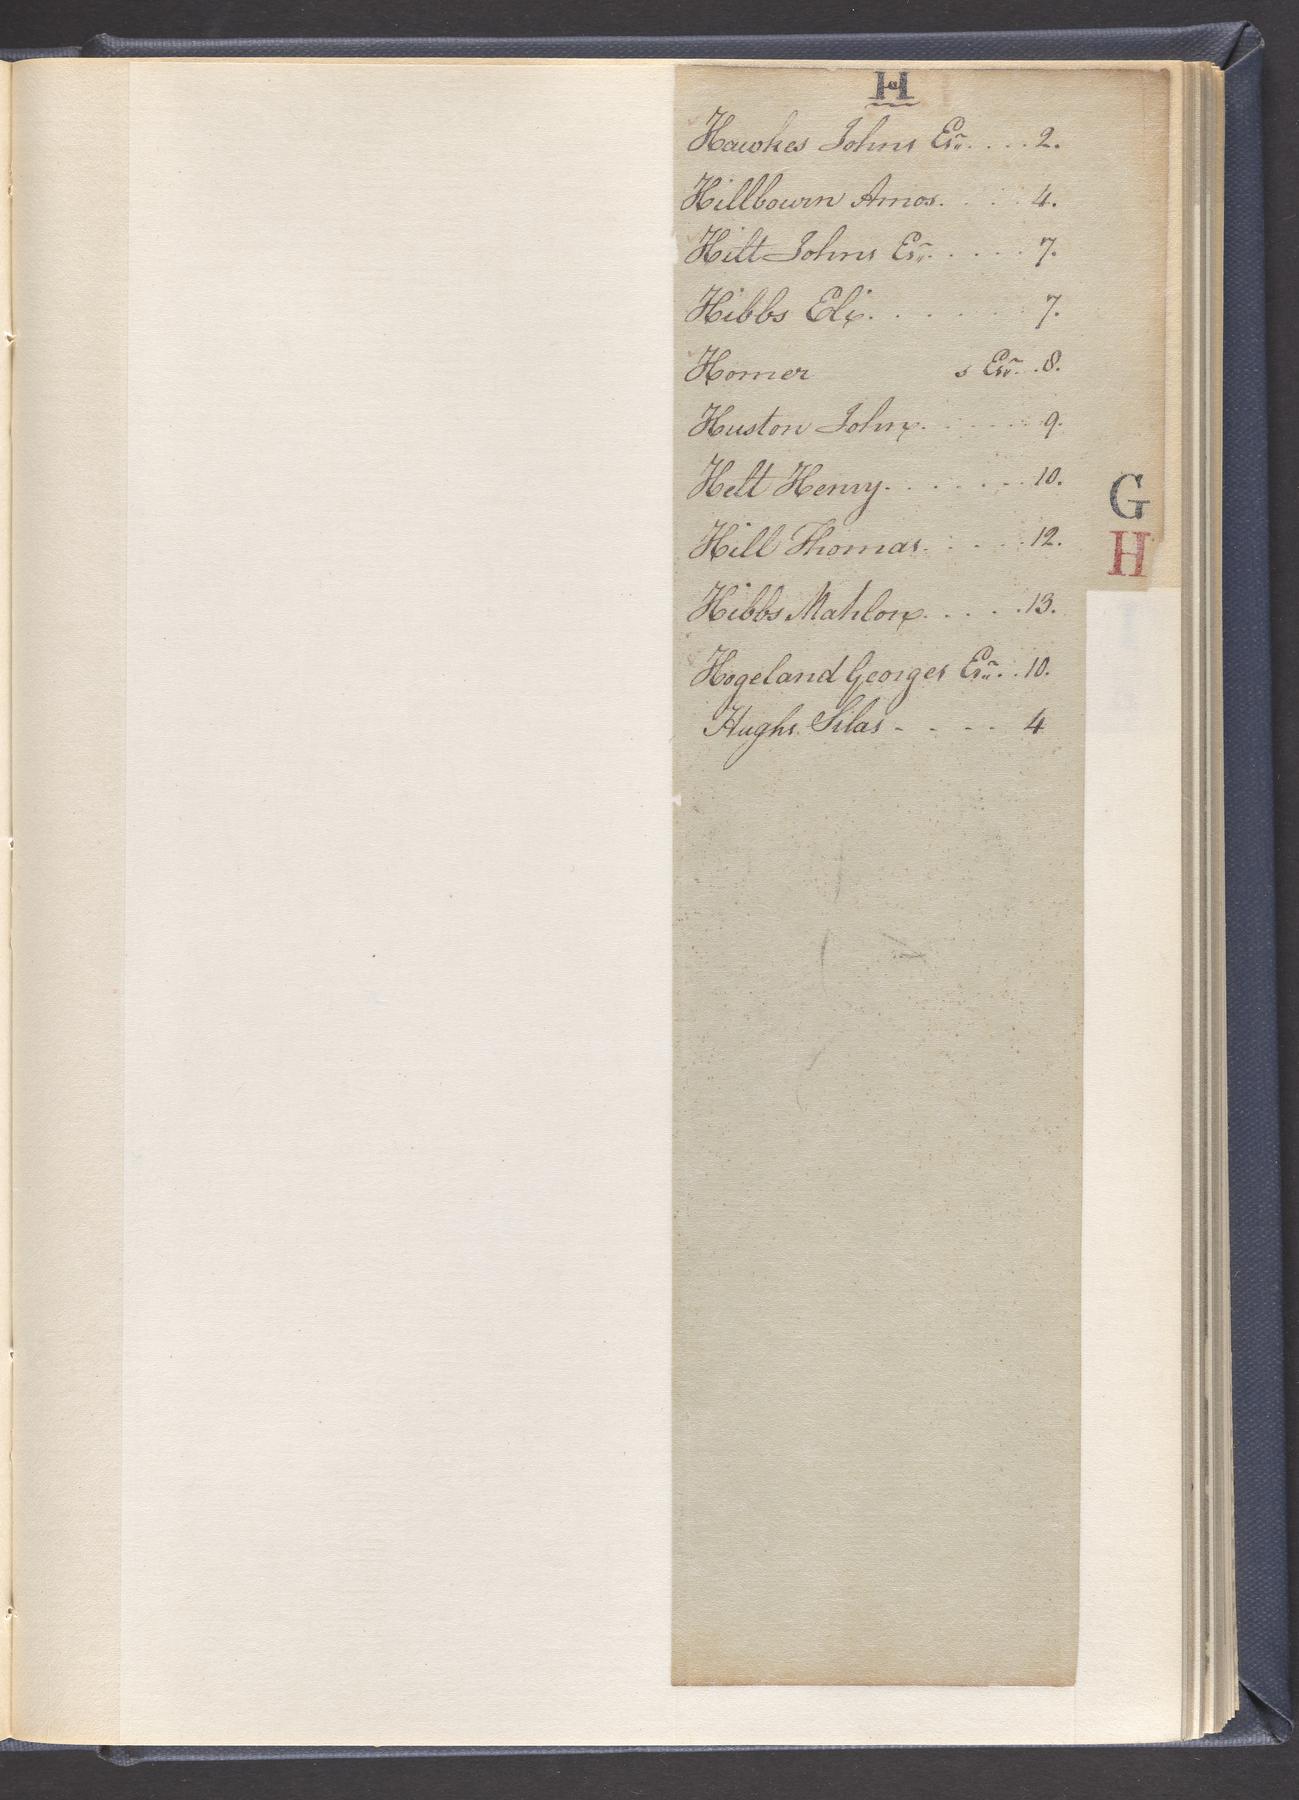 H
Hawkes Johns Esr. . . . 2.
Hillbourn Amos. . . . 4.
Hilt Johns Esr. . . . . 7.
Hibbs Eli. . . . . . 7.
Homer s Esr. . 8.
Huston John. . . . . . 9.
Helt Henry. . . . . . . 10.
Hill Thomas. . . . . 12.
Hibbs Mahlon. . . . . 13.
Hogeland Georges Esr. . 10.
Hughs Silas - - - - 4
G
H